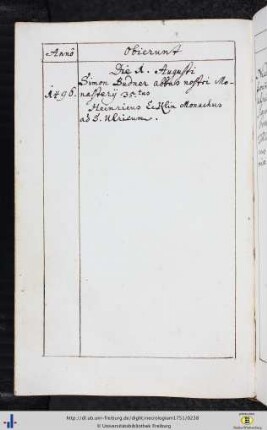 Anno Obierunt
Die 1. Augusti
1496. Simon Budner abbas nostri Mo-
nasterij 35.tus
Heinricus Ecklin Monachus
ad S. Ulricum.
http://dl.ub.uni-freiburg.de/diglit/necrologium1751/0238
© Universitätsbibliothek Freiburg